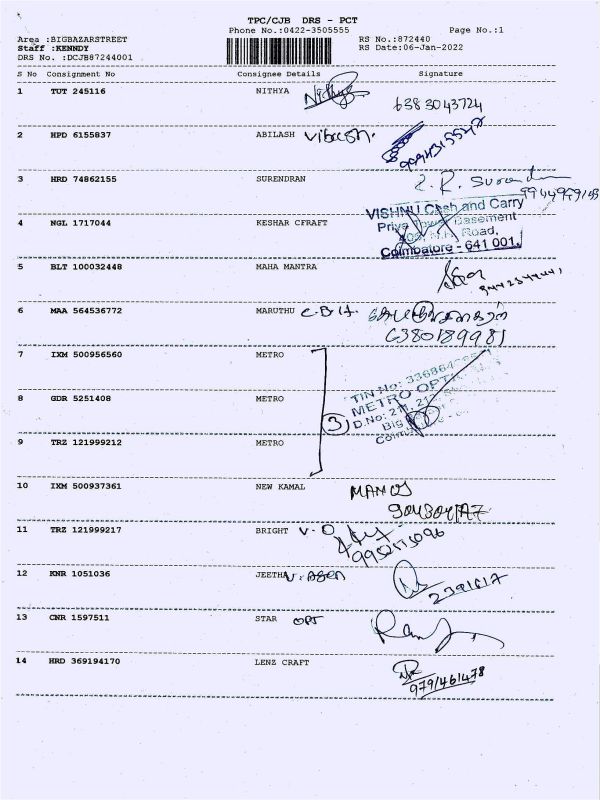 TPC/CJB DRS - PCT
Phone No.:0422-3505555 Page No.:1
Area :BIGBAZARSTREET RS No.:872440
Staff :KENNDY RS Date:06-Jan-2022
DRS No. :DCJB87244001
S No Consignment No Consignee Details Signature
1 TUT 245116 NITHYA Nithya 6383043724
2 HPD 6155837 ABILASH
3 HRD 74862155 SURENDRAN
VISHNU Cash and Carry
4 NGL 1717044 KESHAR CFRAFT Priya Tower Basement
Road,
Coimbatore - 641 001.
5 BLT 100032448 MAHA MANTRA
6 MAA 564536772 MARUTHU
6380189981
7 IXM 500956560 METRO
TIN No:
8 GDR 5251408 METRO
3
9 TRZ 121999212 METRO
10 IXM 500937361 NEW KAMAL
11 TRZ 121999217 BRIGHT V.O
12 KNR 1051036 JEETHA
13 CNR 1597511 STAR OPT
14 HRD 369194170 LENZ CRAFT
9791461478